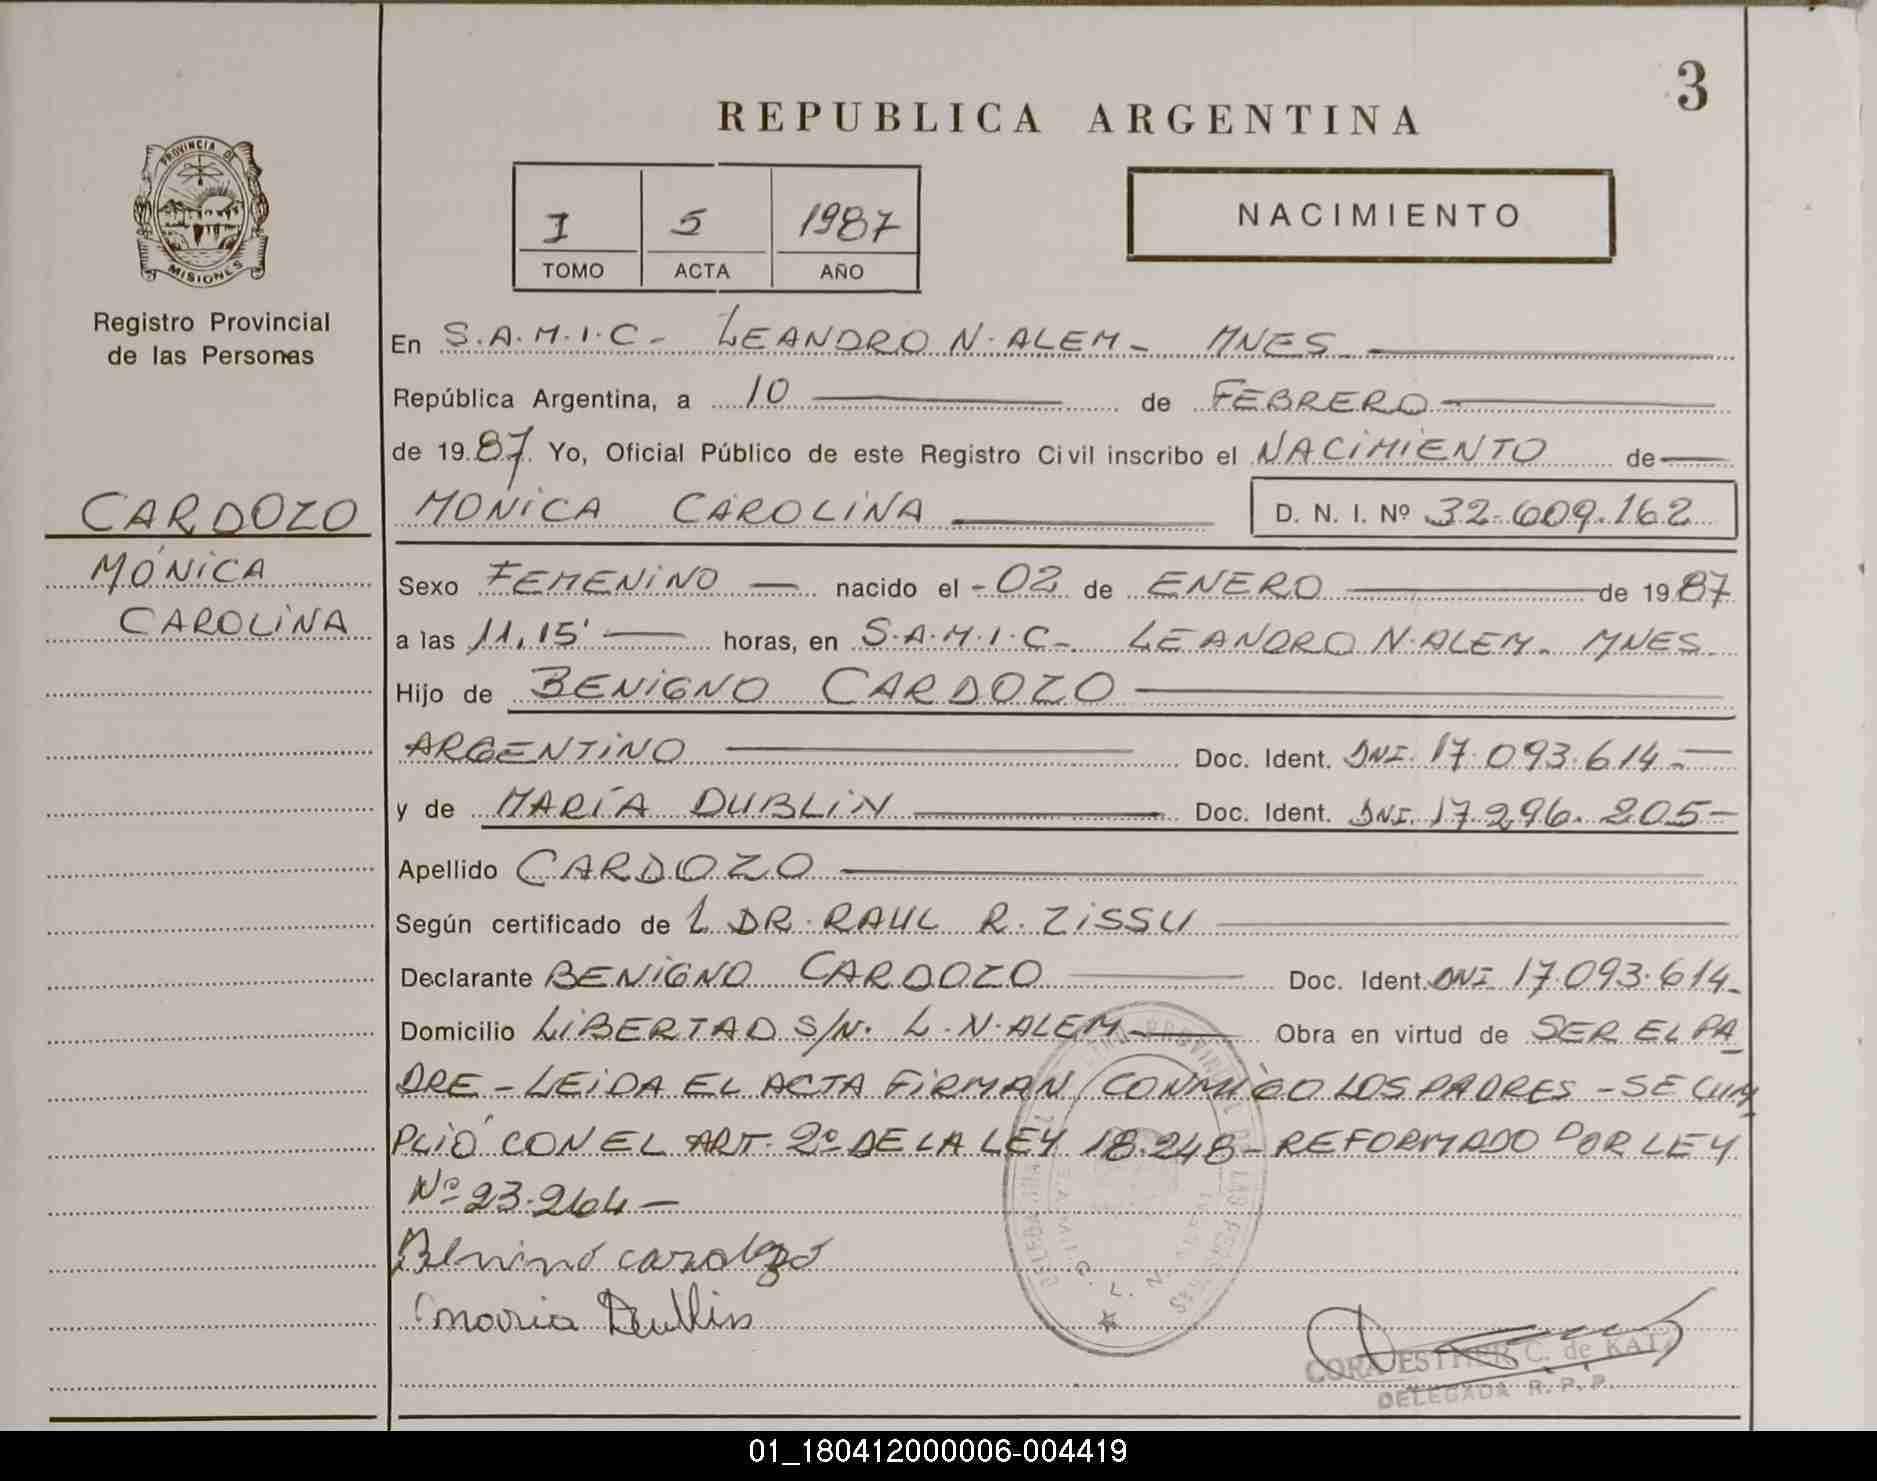 3
REPUBLICA ARGENTINA
PROVINCIA DE
MISIONES
I 5 1987
TOMO ACTA AÑO
NACIMIENTO
Registro Provincial
de las Personas
En S.A.M.I.C- LEANDRO N. ALEM- MNES.
República Argentina, a 10 de FEBRERO
de 1987. Yo, Oficial Público de este Registro Civil inscribo el NACIMIENTO de
CARDOZO
MÓNICA
CAROLINA
MONICA CAROLINA D. N. I. Nº 32.609.162
Sexo FEMENINO nacido el -02 de ENERO de 1987
a las 11,15' horas, en S.A.M.I.C- LEANDRO N. ALEM- MNES.
Hijo de BENIGNO CARDOZO
ARGENTINO Doc. Ident. DNI. 17.093.614.-
y de MARÍA DUBLIN Doc. Ident. DNI. 17.296.205-
Apellido CARDOZO
Según certificado de L DR. RAUL R. ZISSU
Declarante BENIGNO CARDOZO Doc. Ident. DNI 17.093.614-
Domicilio LIBERTAD S/N. L.N. ALEM- Obra en virtud de SER EL PA
DRE - LEIDA EL ACTA FIRMAN CONMIGO LOS PADRES - SE CUM
PLIÓ CON EL ART. 2º DE LA LEY 18.248- REFORMADO POR LEY
Nº 23.264-
Maria Dublin
CORA ESTHER C. de KATZ
DELEGADA R.P.P.
01_180412000006-004419